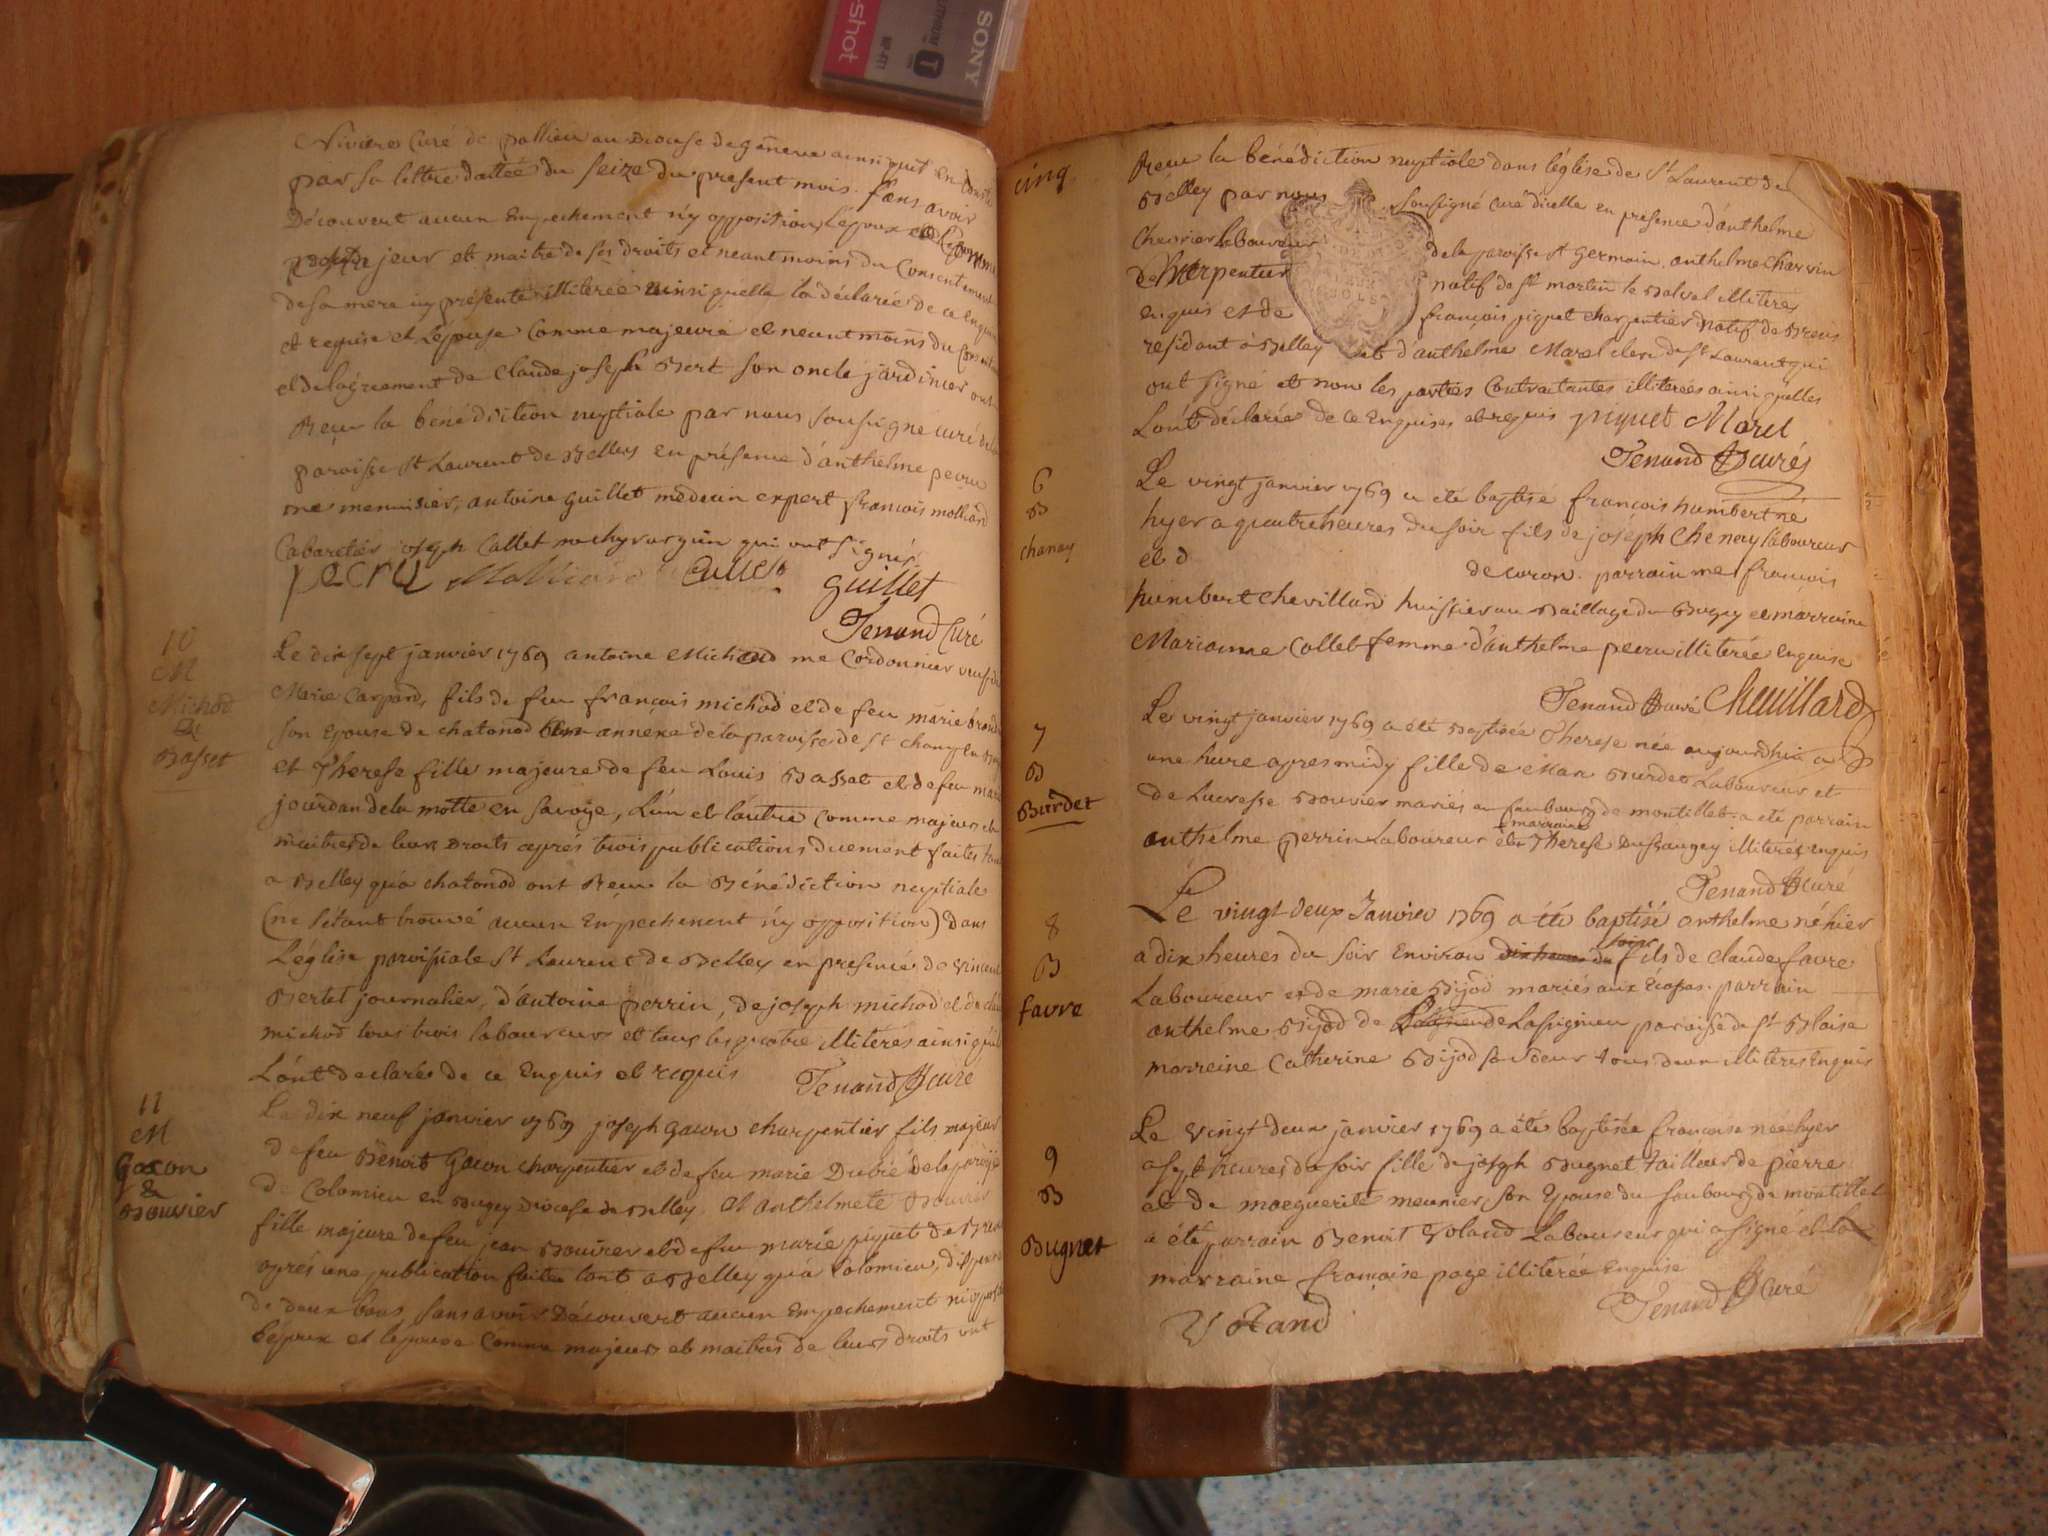 SONY
T
shot
Curé de pollieu au Diocese de géneve ainsi
par sa lettre dattée du seize du present mois. sans avoir
Découvert aucun Empechement n'y opposition, L'époux
majeur et maitre de ses droits et neantmoins du Consentement
de sa mere icy présente illiterée ainsi quelle la déclarée de ce enquise
et requise et L'épouse Comme majeure et neantmoins du
et de lagréement de Claude joseph Bert son oncle jardinier ont
Receu la bénédiction nuptiale par nous soussigné curé de la
paroisse st Laurent de Belley en présence d'anthelme pecru
me menuisier, antoine guillet medecin expert françois molliard
Cabaretier joseph Callet qui ont signés.
pecru Molliard Callet guillet
Tenand Curé
10
M
Michod
&
Basset
Le dix sept janvier 1769 antoine Michod me Cordonnier veuf de
Marie Carpard, fils de feu françois michod et de feu marie
son Epouse de chatonod annexe de la paroisse de st champ En
et Therese fille majeure de feu Louis Basset et de feu
jourdan de la motte en savoye, L'un et l'autre Comme majeurs et
maitres de leurs Droits aprés trois publications duement faites tant
a Belley qu'a chatonod ont Receu la Bénédiction nuptiale
(ne s'étant trouvé aucun Empechement n'y opposition) Dans
L'église paroissiale St Laurent de Belley en presence de vincent
Bertet journalier, d'antoine perrin, de joseph michod et de
michod tous trois laboureurs et tous les quatre illiterés ainsi qu'ils
L'ont declarés de ce Enquis et requis Tenand Curé
11
M
Gacon
&
Bouvier
Le dix neuf janvier 1769 joseph gacon charpentier fils majeur
de feu Benoit Gacon charpentier et de feu marie Dubié de la paroisse
de Colomieu en Bugey Diocese de Belley, et anthelmete Bouvier
fille majeure de feu jean Bouvier et de feu marie piquet de
aprés une publication faite tant a Belley qu'a Colomieu,
de deux bans sans avoir Découvert aucun Empechement ni
L'époux et l'épouse Comme majeurs et maitres de leurs droits ont
cinq
Receu la bénédiction nuptiale dans léglise de St Laurent de
Belley par nous soussigné curé d'icelle en presence d'anthelme
Chevrier laboureur de la paroisse st germain, anthelme charvin
charpentier natif de st martin le illiteres
enquis et de françois piquet charpentier natif de
résidant à Belley et d'anthelme Marel clerc de st Laurent qui
ont signé et non les parties Contractantes illiterées ainsi quelles
L'ont déclarées de ce Enquises et requis piquet Marel
Tenand Curé
6
B
chanay
Le vingt janvier 1769 a été baptisé françois humbert né
hyer a quatre heures du soir fils de joséph Chenay laboureur
et d
de coron. parrain me françois
humbert chevillard huissier au Baillage du Bugey et marraine
Marianne Callet femme d'anthelme pecru illiterée Enquise
Tenand Curé Chevillard
7
B
Burdet
Le vingt janvier 1769 a été Baptisée Therese née aujourdhui a
une heure apres midy fille de Marc Burdet Laboureur et
de Lucresse Bouvier mariés au faubourg de montillet. a été parrain
anthelme perrin Laboureur et marraine Therese illiterés enquis
Tenand Curé
8
B
favre
Le vingt deux Janvier 1769 a été baptisé anthelme né hier
a dix heures du soir Environ dix heures du soir fils de claude favre
Laboureur et de marie Bijod mariés aux Ecassas. parrain
anthelme Bijod de Lassignieu paroisse de st Blaise
marreine Catherine Bijod sa Soeur tous deux illiteres Enquis
9
B
Bugnet
Le vingt deux janvier 1769 a été baptisée françoise née hyer
a sept heures du soir fille de joseph Bugnet tailleur de pierre
et de marguerite meunier son Epouse du faubourg de montillet
a été parrain Benoit Voland Laboureur qui a signé et La
marraine françoise page illiterée Enquise
Tenand Curé
Voland